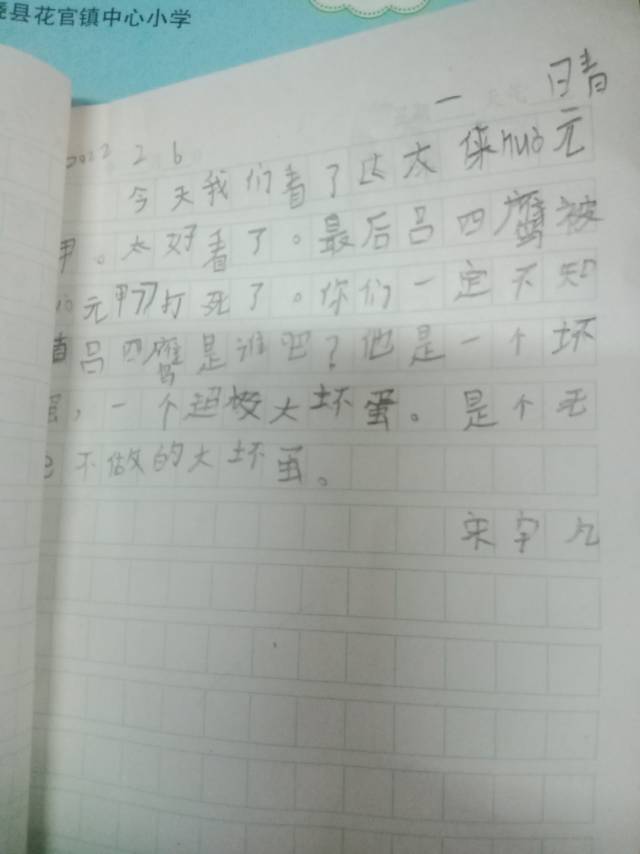 县花官镇中心小学
一 晴
2022 2 6
今天我们看了大大侠huò元
甲。太好看了。最后吕四鹰被
元甲打死了。你们一定不知
道吕四鹰是谁吧?他是一个坏
蛋,一个超极大坏蛋。是个无
不做的大坏蛋。
宋宇